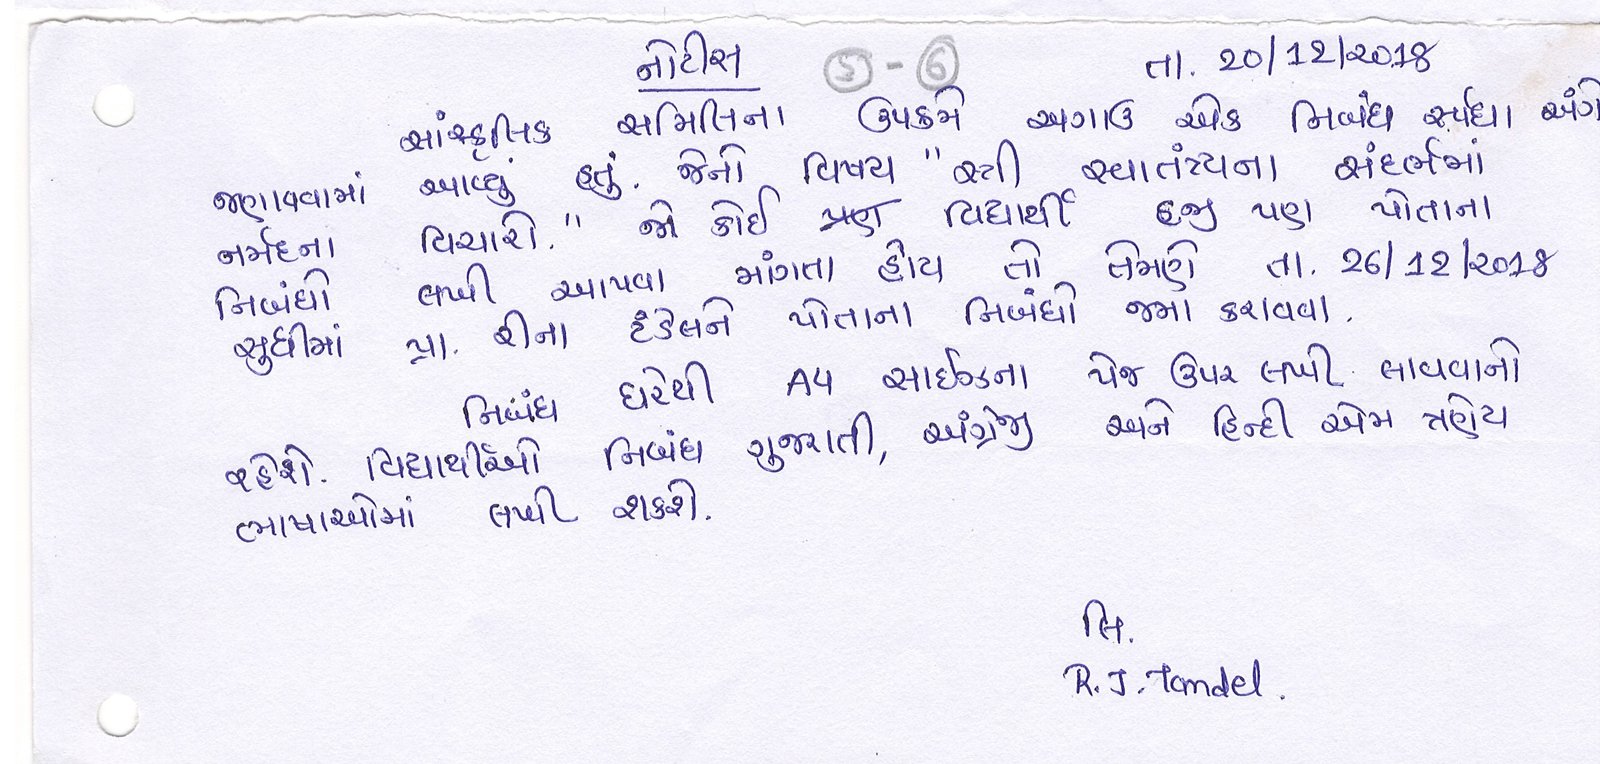 નોટીસ ⑤-⑥ તા. 20/12/2018
સાંસ્કૃતિક સમિતિના ઉપક્રમે અગાઉ એક નિબંધ સ્પર્ધા અંગે
જણાવવામાં આવ્યું હતું. જેનો વિષય "સ્ત્રી સ્વાતંત્ર્યના સંદર્ભમાં
નર્મદના વિચારો." જો કોઈ વિદ્યાર્થી હજી પણ પોતાના
નિબંધો લખી આપવા માંગતા હોય તો તેમણે તા. 26/12/2018
સુધીમાં પ્રા. રીના ટંડેલને પોતાના નિબંધો જમા કરાવવા.
નિબંધ ઘરેથી A4 સાઈઝના પેજ ઉપર લખી લાવવાનો
રહેશે. વિદ્યાર્થીઓ નિબંધ ગુજરાતી, અંગ્રેજી અને હિન્દી એમ ત્રણેય
ભાષાઓમાં લખી શકશે.
લિ.
R. J. Tandel.